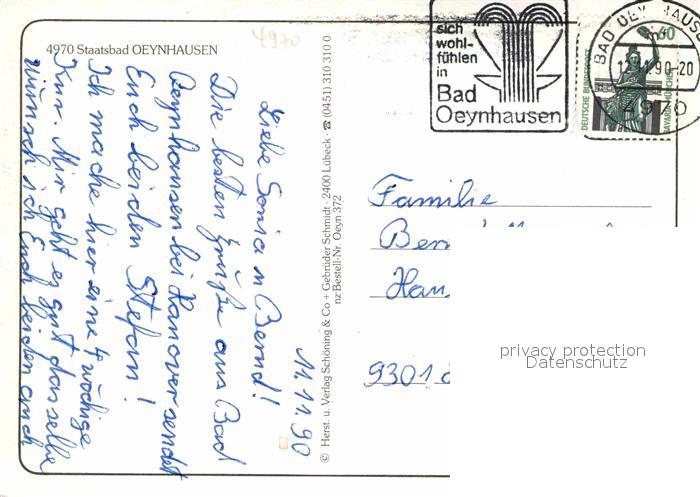 4970 Staatsbad OEYNHAUSEN
4970
11.11.90
Liebe Sonia u Bernd!
Die besten Grüße aus Bad
Oeynhausen bei Hanover sendet
Euch beiden Stefan!
Ich mache hier eine 4 wöchige
Kur. Mir geht es gut dasselbe
wünsch ich Euch beiden auch
© Herst. u. Verlag Schöning & Co + Gebrüder Schmidt · 2400 Lübeck · ☎ (0451) 310 310 0
nz·Bestell-Nr. Oeyn 372
sich
wohl-
fühlen
in
Bad
Oeynhausen
BAD OEYNHAUSE
12.11.90-20
4970
60
DEUTSCHE BUNDESPOST
BAVARIA MÜNCHEN
Familie
Ber
Han
9301
privacy protection
Datenschutz